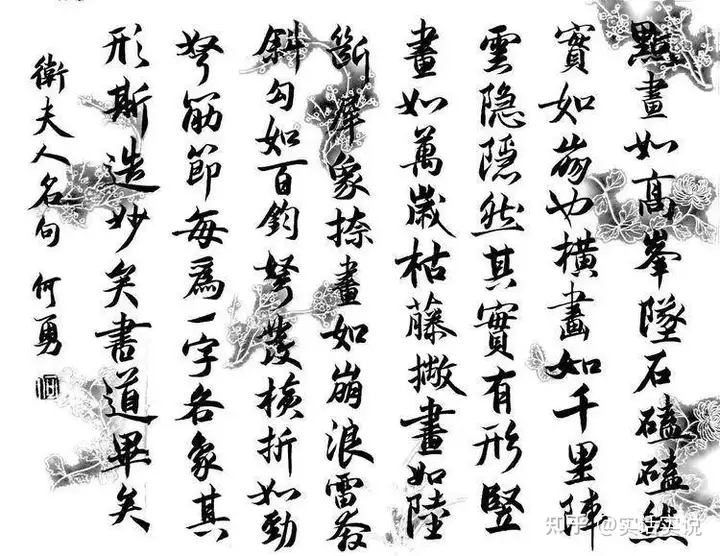 點畫如高峯墜石磕磕然
實如崩也橫畫如千里陣
雲隐隱然其實有形竪
畫如萬歲枯藤撇畫如陸
斷犀象捺畫如崩浪雷奔
斜勾如百鈞弩發横折如勁
弩筋節每爲一字各象其
形斯造妙矣書道畢矣
衛夫人名句 何勇
知乎 @实话实说